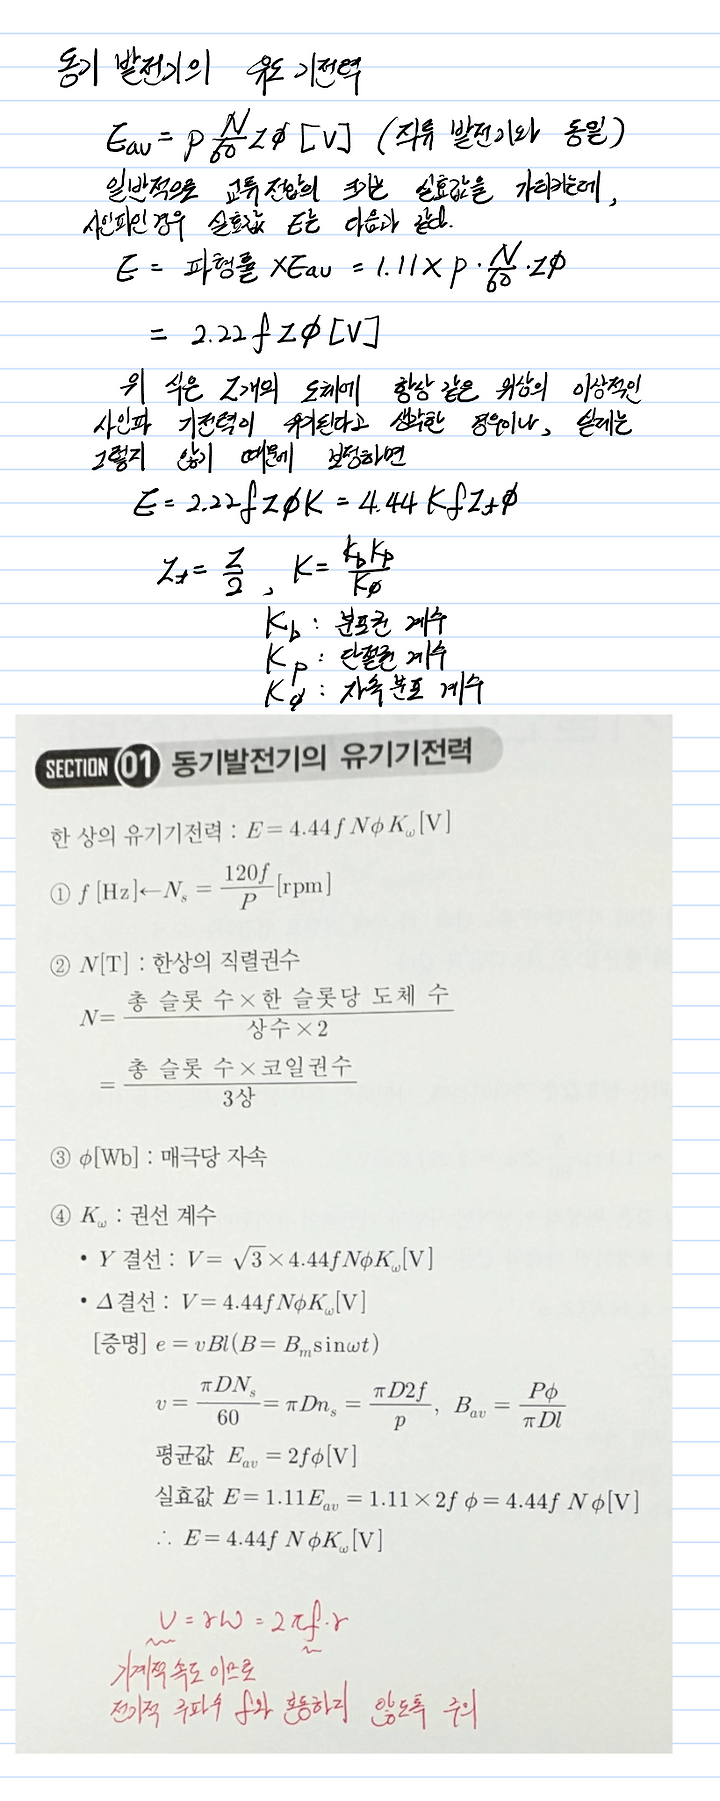 동기 발전기의 유도 기전력
Eav = p N/60 zφ [V] (직류 발전기와 동일)
일반적으로 교류전압의 크기는 실효값을 가리키는데,
사인파인경우 실효값 E는 다음과 같다.
E = 파형률 × Eav = 1.11 × p · N/60 · zφ
= 2.22 f z φ [V]
위 식은 Z개의 도체에 항상 같은 위상의 이상적인
사인파 기전력이 유기된다고 생각한 경우이나, 실제는
그렇지 않기 때문에 보정하면
E = 2.22 f z φ K = 4.44 K f Zt φ
Zt = Z/2, K = KbKp/Kφ
Kb : 분포권 계수
Kp : 단절권 계수
Kφ : 자속분포 계수
SECTION 01 동기발전기의 유기기전력
한 상의 유기기전력 : E = 4.44f NφKω[V]
① f [Hz]←Ns = 120f/P [rpm]
② N[T] : 한상의 직렬권수
N = 총 슬롯 수×한 슬롯당 도체 수/상수×2
= 총 슬롯 수×코일권수/3상
③ φ[Wb] : 매극당 자속
④ Kω : 권선 계수
• Y 결선 : V = √3×4.44fNφKω[V]
• Δ결선 : V = 4.44fNφKω[V]
[증명] e = vBl(B = Bm sinωt)
v = πDNs/60 = πDns = πD2f/p, Bav = Pφ/πDl
평균값 Eav = 2fφ[V]
실효값 E = 1.11Eav = 1.11×2f φ = 4.44f Nφ[V]
∴ E = 4.44f NφKω[V]
v = rω = 2πf·r
기계적 속도 이므로
전기적 주파수 f와 혼동하지 않도록 주의